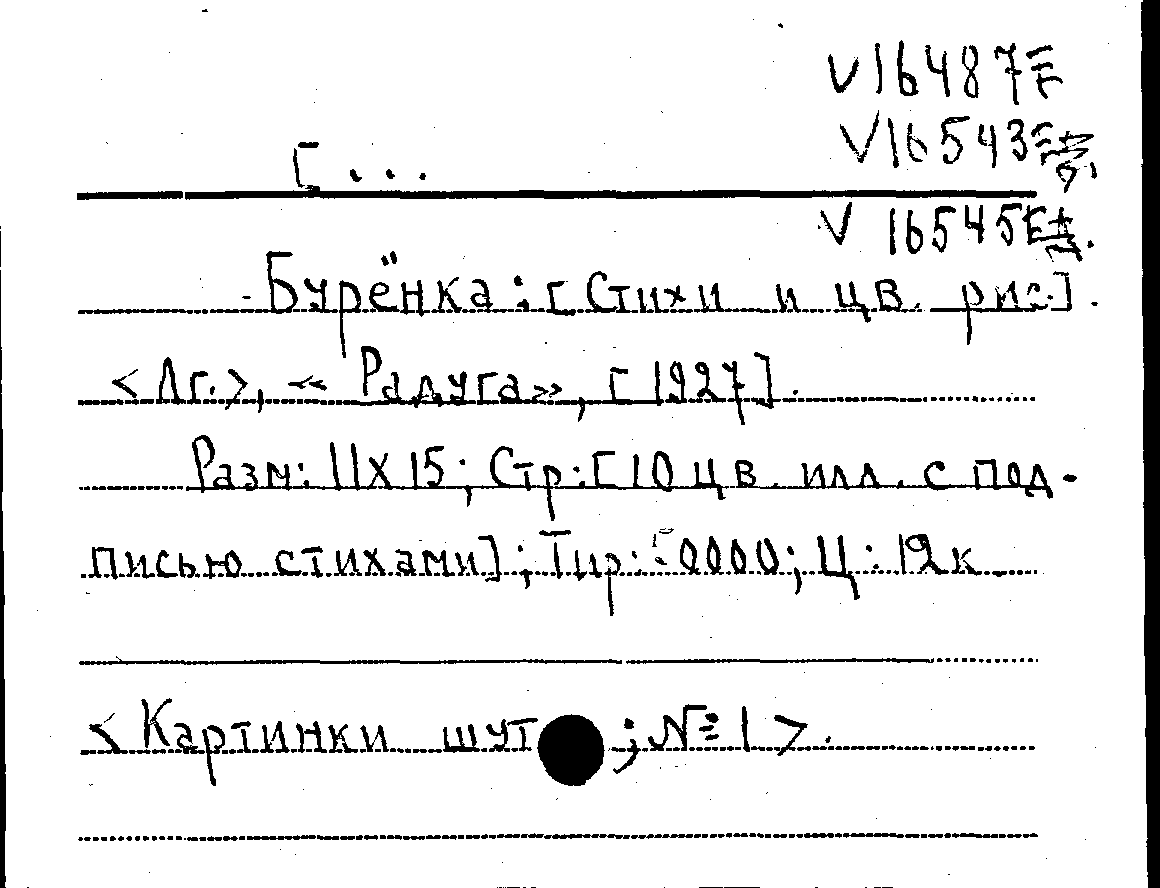 V16487E
V16543E
[...
V 16545E
Бурёнка: [Стихи и цв. рис.].
<Лг.>, «Радуга», [1927].
Разм: 11X15; Стр: [10 цв. илл. с под-
писью стихами]; Тир: 50000; Ц: 12к
<Картинки шут ; №1>.